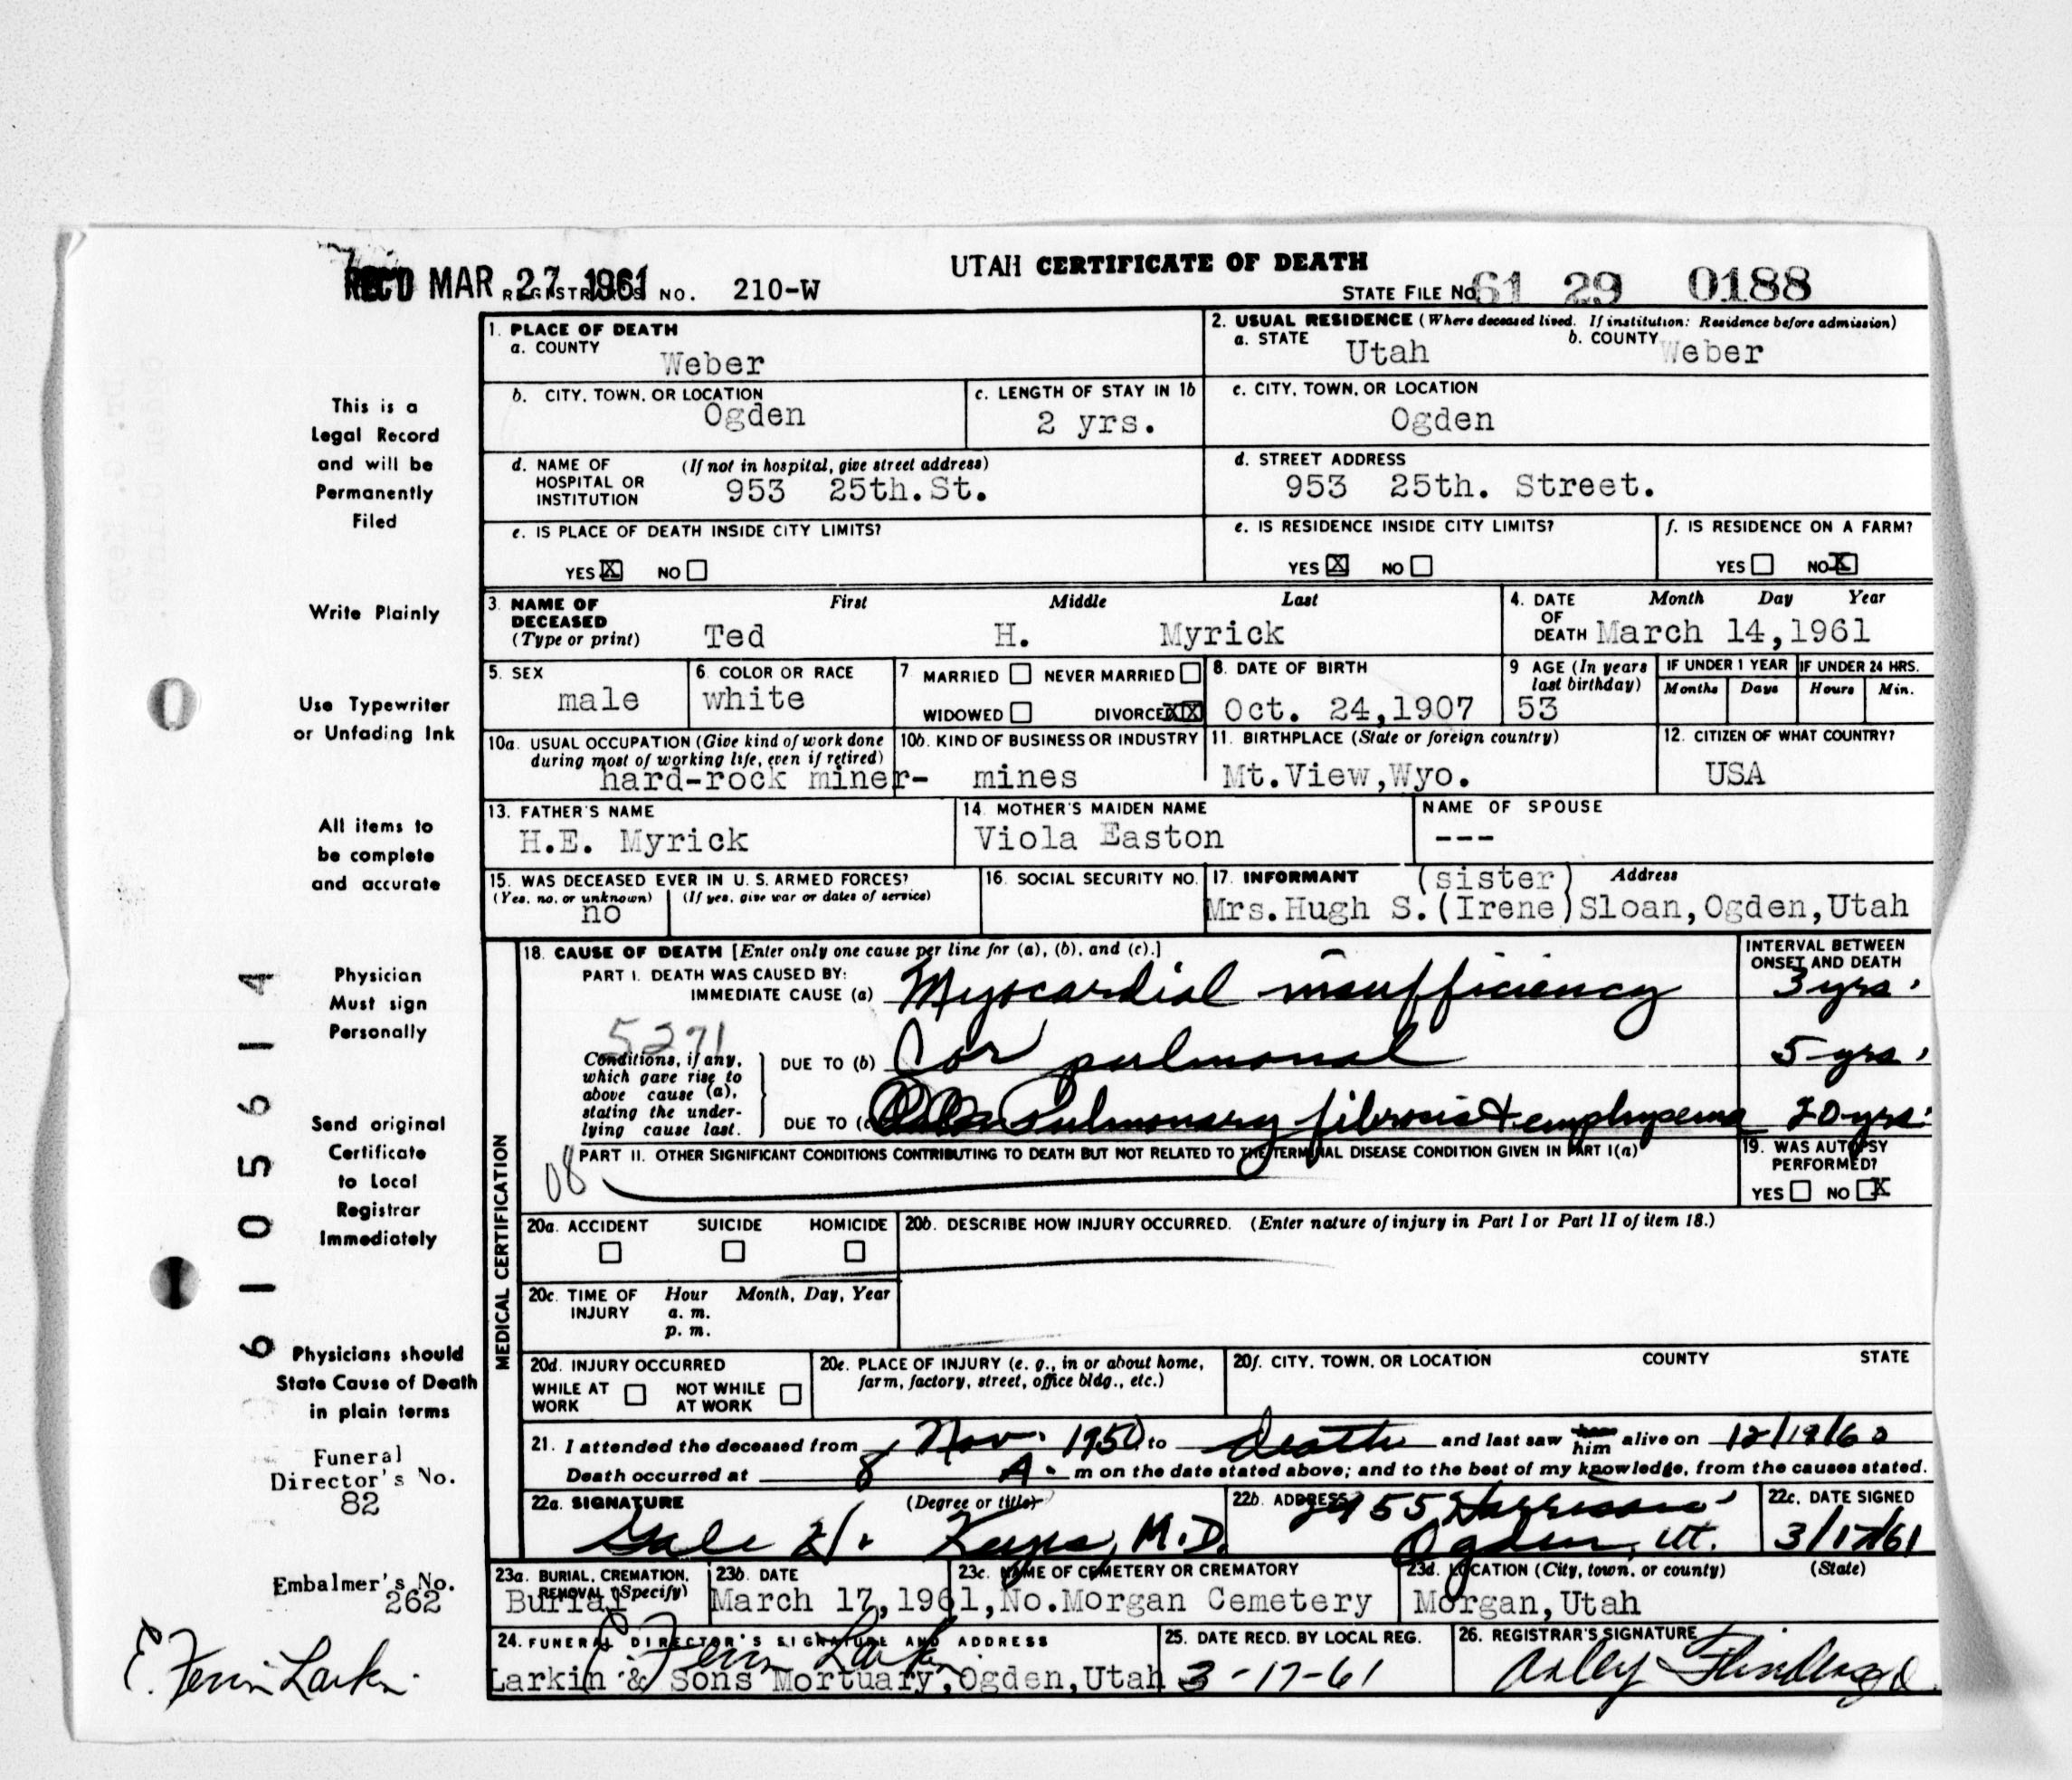 UTAH CERTIFICATE OF DEATH
REC'D MAR 27 1961 REGISTRAR'S NO. 210-W STATE FILE NO. 61 29 0188
1. PLACE OF DEATH
a. COUNTY
Weber
2. USUAL RESIDENCE (Where deceased lived. If institution: Residence before admission)
a. STATE Utah b. COUNTY Weber
b. CITY, TOWN, OR LOCATION
Ogden
c. LENGTH OF STAY IN 1b
2 yrs.
c. CITY, TOWN, OR LOCATION
Ogden
d. NAME OF HOSPITAL OR INSTITUTION (If not in hospital, give street address)
953 25th.St.
d. STREET ADDRESS
953 25th. Street.
e. IS PLACE OF DEATH INSIDE CITY LIMITS?
YES X NO
e. IS RESIDENCE INSIDE CITY LIMITS?
YES X NO
f. IS RESIDENCE ON A FARM?
YES NO X
3. NAME OF DECEASED (Type or print) First Middle Last
Ted H. Myrick
4. DATE OF DEATH Month Day Year
March 14,1961
5. SEX
male
6. COLOR OR RACE
white
7 MARRIED NEVER MARRIED
WIDOWED DIVORCED XX
8. DATE OF BIRTH
Oct. 24,1907
9 AGE (In years last birthday)
53
IF UNDER 1 YEAR IF UNDER 24 HRS.
Months Days Hours Min.
10a. USUAL OCCUPATION (Give kind of work done during most of working life, even if retired)
hard-rock miner-
10b. KIND OF BUSINESS OR INDUSTRY
mines
11. BIRTHPLACE (State or foreign country)
Mt.View,Wyo.
12. CITIZEN OF WHAT COUNTRY?
USA
13. FATHER'S NAME
H.E. Myrick
14. MOTHER'S MAIDEN NAME
Viola Easton
NAME OF SPOUSE
---
15. WAS DECEASED EVER IN U. S. ARMED FORCES?
(Yes, no, or unknown) (If yes, give war or dates of service)
no
16. SOCIAL SECURITY NO.
17. INFORMANT (sister) Address
Mrs.Hugh S.(Irene)Sloan,Ogden,Utah
MEDICAL CERTIFICATION
18. CAUSE OF DEATH [Enter only one cause per line for (a), (b), and (c).]
INTERVAL BETWEEN ONSET AND DEATH
PART I. DEATH WAS CAUSED BY:
IMMEDIATE CAUSE (a) Myocardial insufficiency 3 yrs.
5271
Conditions, if any, which gave rise to above cause (a), stating the underlying cause last.
DUE TO (b) Cor pulmonal 5 yrs.
DUE TO (c) Pulmonary fibrosis & emphysema 20 yrs.
PART II. OTHER SIGNIFICANT CONDITIONS CONTRIBUTING TO DEATH BUT NOT RELATED TO THE TERMINAL DISEASE CONDITION GIVEN IN PART I(a)
08
19. WAS AUTOPSY PERFORMED?
YES NO X
20a. ACCIDENT SUICIDE HOMICIDE
20b. DESCRIBE HOW INJURY OCCURRED. (Enter nature of injury in Part I or Part II of item 18.)
20c. TIME OF INJURY Hour Month, Day, Year
a. m.
p. m.
20d. INJURY OCCURRED
WHILE AT WORK NOT WHILE AT WORK
20e. PLACE OF INJURY (e. g., in or about home, farm, factory, street, office bldg., etc.)
20f. CITY, TOWN, OR LOCATION COUNTY STATE
21. I attended the deceased from 8 Nov. 1950 to death and last saw him alive on 12/19/60
Death occurred at 8 A. m on the date stated above; and to the best of my knowledge, from the causes stated.
22a. SIGNATURE (Degree or title)
Gale H. M.D.
22b. ADDRESS 2955 Harrison
Ogden, Ut.
22c. DATE SIGNED
3/17/61
23a. BURIAL, CREMATION, REMOVAL (Specify)
Burial
23b. DATE
March 17,1961,
23c. NAME OF CEMETERY OR CREMATORY
No.Morgan Cemetery
23d. LOCATION (City, town, or county) (State)
Morgan,Utah
24. FUNERAL DIRECTOR'S SIGNATURE AND ADDRESS
E. Ferrin Larkin
Larkin & Sons Mortuary,Ogden,Utah
25. DATE RECD. BY LOCAL REG.
3-17-61
26. REGISTRAR'S SIGNATURE
This is a
Legal Record
and will be
Permanently
Filed
Write Plainly
Use Typewriter
or Unfading Ink
All items to
be complete
and accurate
Physician
Must sign
Personally
Send original
Certificate
to Local
Registrar
Immediately
Physicians should
State Cause of Death
in plain terms
Funeral
Director's No.
82
Embalmer's No.
262
E. Ferrin Larkin
61056 14